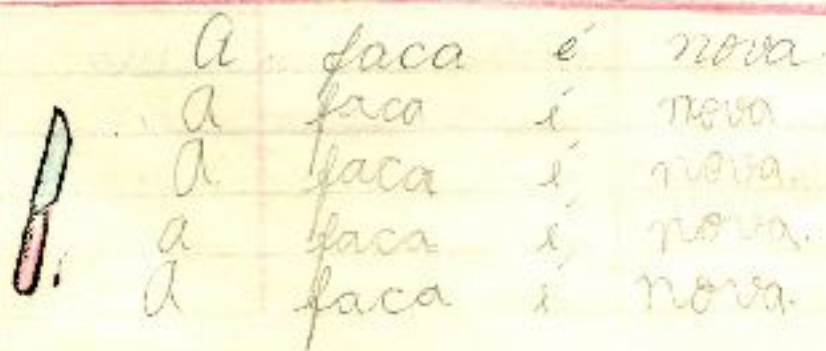 A faca é nova.
A faca é nova
A faca é nova.
a faca é nova.
A faca é nova.